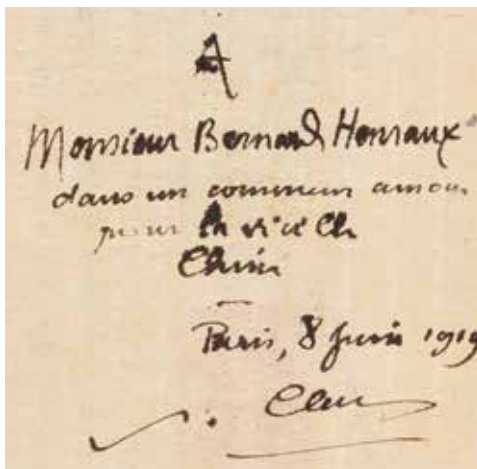 A
Monsieur Bernard Henraux
dans un commun amour
pour la vieille
Chine
Paris, 8 Juin 1919